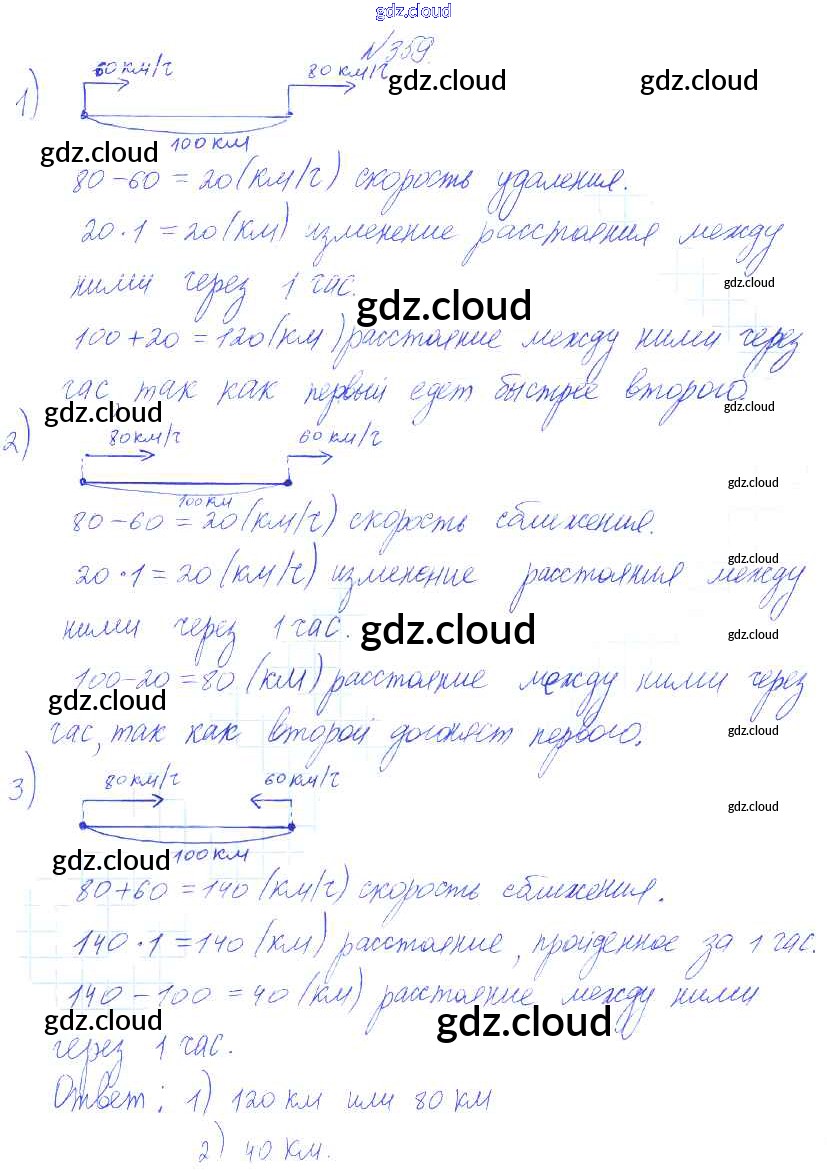 gdz.cloud
№359.
60 км/ч 80 км/ч
gdz.cloud gdz.cloud
1)
100 км
gdz.cloud
80-60=20(км/ч) скорость удаления.
20·1=20(км) изменение расстояния между
ними через 1 час.
gdz.cloud
gdz.cloud
100+20=120(км) расстояние между ними через
час, так как первый едет быстрее второго.
gdz.cloud gdz.cloud
2) 80км/ч 60 км/ч
gdz.cloud
100 км
80-60=20(км/ч) скорость сближения.
gdz.cloud
20·1=20(км/ч) изменение расстояния между
ними через 1 час.
gdz.cloud gdz.cloud
100-20=80 (км) расстояние между ними через
gdz.cloud
час, так как второй догоняет первого.
gdz.cloud
3) 80 км/ч 60 км/ч
gdz.cloud
100 км
gdz.cloud
80+60=140 (км/ч) скорость сближения.
140·1=140 (км) расстояние, пройденное за 1 час.
140-100=40 (км) расстояние между ними
gdz.cloud gdz.cloud
через 1 час.
Ответ: 1) 120 км или 80 км
2) 40 км.